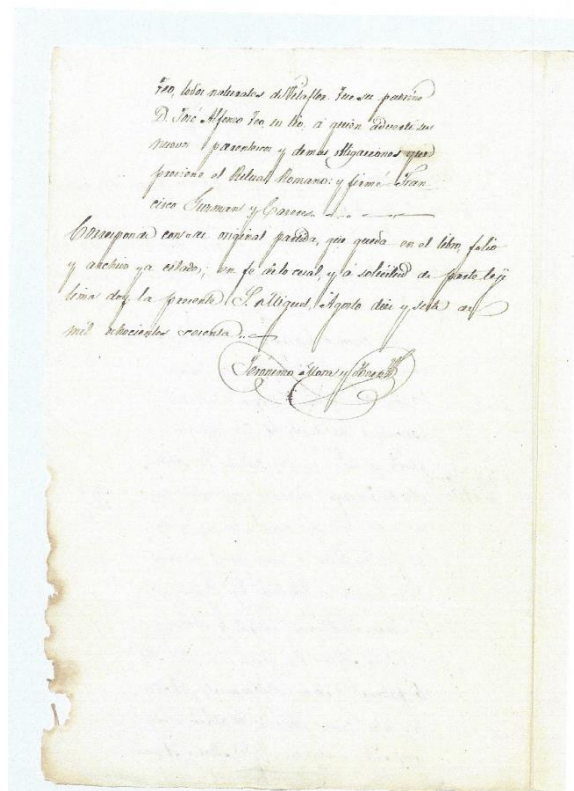 Feo, todos naturales de Vilaflor. Fue su padrino
D. José Alfonso Feo, su tio, á quien advertí su
nuevo parentesco y demas obligaciones que
previene el Ritual Romano: y firmé Fran
cisco Guzman y Caceres
Corresponde con su original partida, que queda en el libro, folio
y archivo ya citados; en fe de lo cual, y á solicitud de parte legi
tima doy la presente S. Miguel, Agosto diez y seis de
mil ochocientos
Jeronimo Mora y